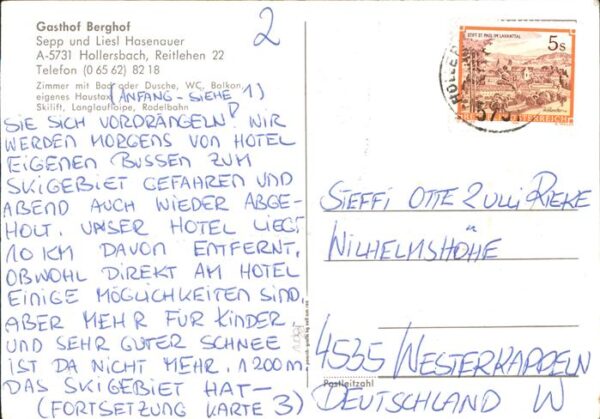 Gasthof Berghof
Sepp und Liesl Hasenauer
A-5731 Hollersbach, Reitlehen 22
Telefon (0 65 62) 82 18
Zimmer mit Bad oder Dusche, WC, Balkon,
eigenes Haustaxi
Skilift, Langlaufloipe, Rodelbahn
2
(ANFANG - SIEHE 1)
SIE SICH VORDRÄNGELN! WIR
WERDEN MORGENS VON HOTEL
EIGENEN BUSSEN ZUM
SKIGEBIET GEFAHREN UND
ABEND AUCH WIEDER ABGE-
HOLT. UNSER HOTEL LIEGT
10 KM DAVON ENTFERNT,
OBWOHL DIREKT AM HOTEL
EINIGE MÖGLICHKEITEN SIND
ABER MEHR FÜR KINDER
UND SEHR GUTER SCHNEE
IST DA NICHT MEHR. 1200m
DAS SKIGEBIET HAT-
(FORTSETZUNG KARTE 3)
STIFT ST. PAUL IM LAVANTTAL
5s
REPUBLIK ÖSTERREICH
STEFFI OTTE & ULLI RIEKE
WILHELMSHÖHE
4535 WESTERKAPPELN
Postleitzahl
DEUTSCHLAND W